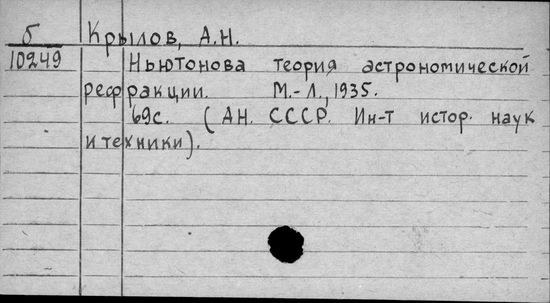 б Крылов, А.Н.
10249 Ньютонова теория астрономической
рефракции. М.-Л., 1935.
69с. (АН. СССР. Ин-т истор. наук
и техники).